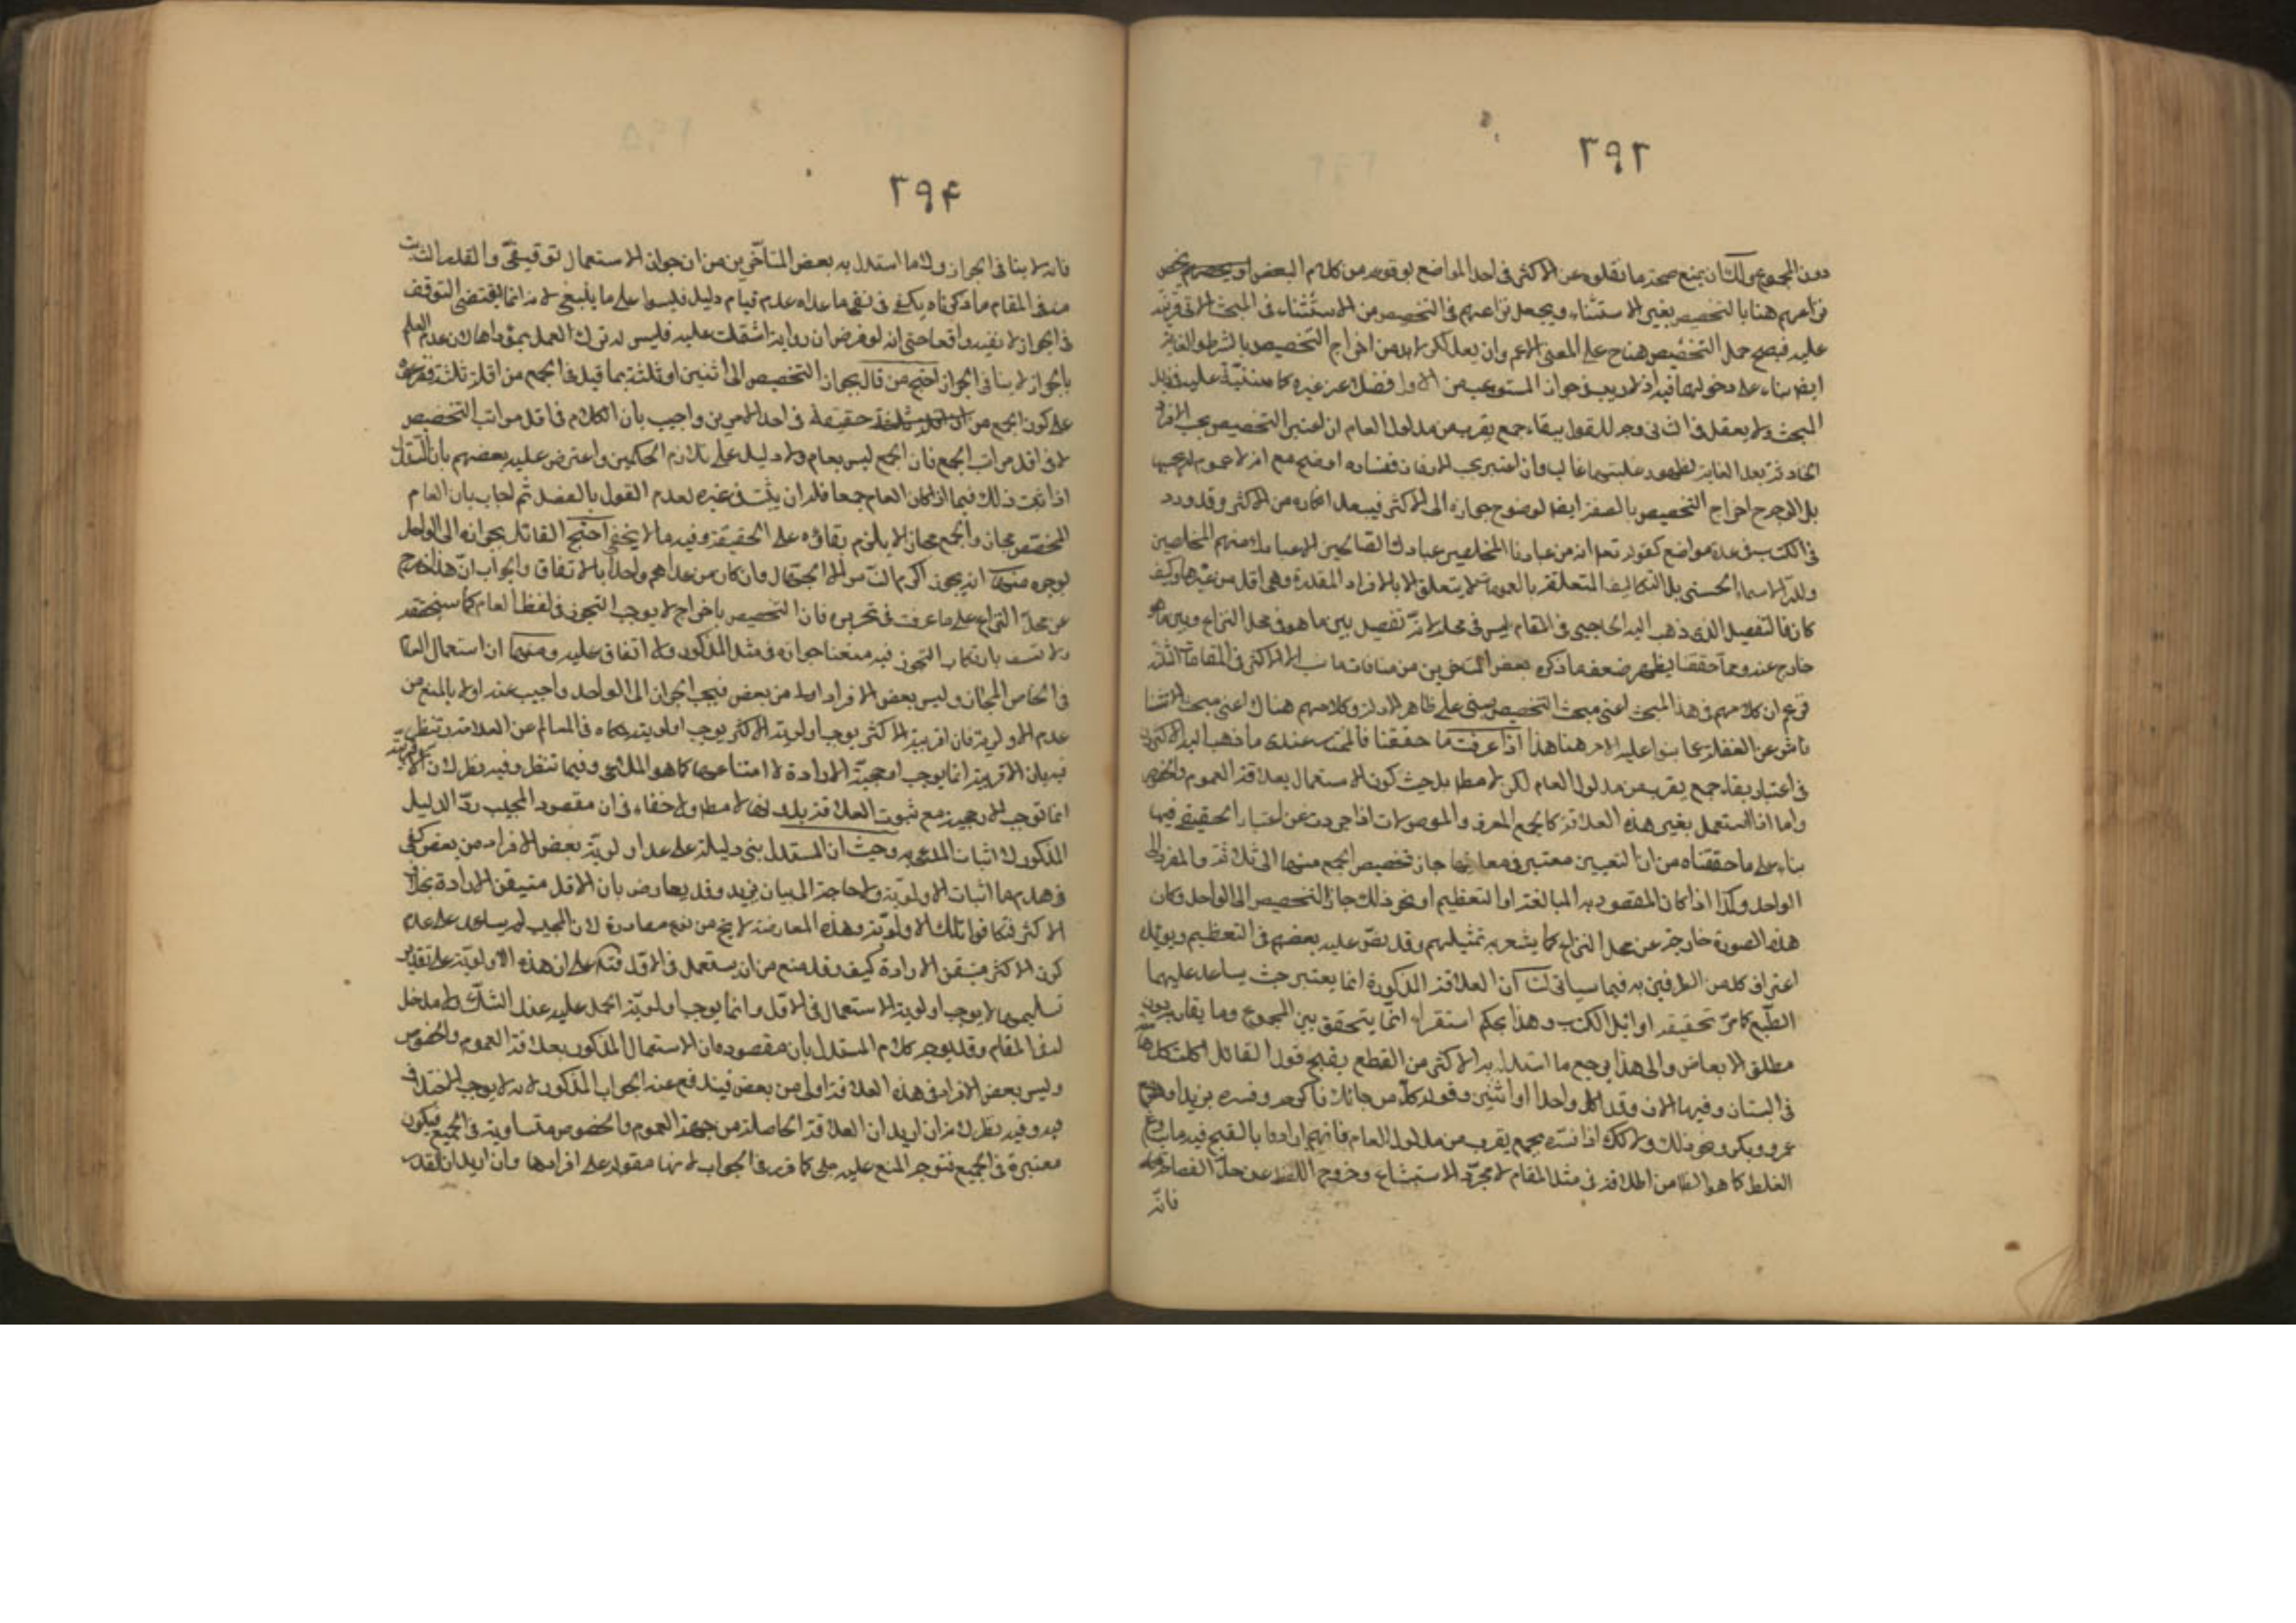 ٣٩٣
دون المجموع ولك ان تمنع صحة ما نقلوه عن الاكثر في احد المواضع لوقوعه من كلام البعض او
نزاعهم هنا بالتخصيص بغير الاستثناء ويجعل نزاعهم في التخصيص من الاستثناء في المبحث الاتي قرينة
عليه فيصح حمل التخصيص هناح على المعنى الاعم وان بعد لكن لابد من اخراج التخصيص بالشرط والغاية
ايضا بناء على دخولهما فيه اذ لا ريب في جواز المستوعب من الاول فضلا عن غيره كما سننبه عليه في ذيل
المبحث ولا يعقل في الثاني وجه للقول ببقاء جمع يقرب من مدلول العام ان اعتبر التخصيص بحسب الافراد
بعد الغاية لظهور غلبتها غالبا وان اعتبر بحسب الازمان ففساده اوضح مع انه لا عموم بحسبها
بل الاوجه اخراج التخصيص بالصفة ايضا لوضوح جوازه الى الاكثر فيبعد انكاره من الاكثر وقد ورد
في الكتاب في عدة مواضع كقوله تعالى انه من عبادنا المخلصين عبادك الصالحين الا عبادك منهم المخلصين
ولله الاسماء الحسنى بل التكاليف المتعلقة بالعمومات لا يتعلق الا بالافراد المقدرة وهي اقل من غيرها وكيف
كان فالتفصيل الذي ذهب اليه الحاجبي في المقام ليس في محله لانه تفصيل بين ما هو في محل النزاع وبين ما هو
خارج عنه ومما حققنا يظهر ضعف ما ذكره بعض المتاخرين من منافات ما نسب الى الاكثر في المقامات الثلاثة
فزعم ان كلامهم في هذا المبحث اعني مبحث التخصيص مبني على ظاهر الادلة وكلامهم هناك اعني مبحث الاستثناء
ناش عن الغفلة عما بنوا عليه الامر هنا هذا اذا عرفت ما حققنا فالمختار عندي ما ذهب اليه الاكثرون
في اعتبار بقاء جمع يقرب من مدلول العام لكن لا مطلقا بل حيث كون الاستعمال بعلاقة العموم والخصوص
واما اذا استعمل بغير هذه العلاقة كالجمع المعرف والموصولات اذا جردت عن اعتبار الحقيقة فيها
بناء على ما حققناه من ان التعيين معتبر في معانيها جاز تخصيص الجمع منهما الى ثلاثة والمفرد الى
الواحد وكذا اذا كان المقصود به المبالغة او التعظيم او نحو ذلك جاز التخصيص الى الواحد وكان
هذه الصورة خارجة عن محل النزاع كما يشعر به تمثيلهم وقد نص عليه بعضهم في التعظيم ويؤيده
اعتراف كل من الطرفين به فيما سياتي لنا ان العلاقة المذكورة انما يعتبر حيث يساعد عليها
الطبع كما مر تحقيقه في اوائل الكتاب وهذا بحكم استقراء انما يتحقق بين المجموع وما يقاربه دون
مطلق الابعاض والى هذا يرجع ما استدل به الاكثر من القطع بقبح قول القائل اكلت كل رمانة
في البستان وفيها الاف وقد اكل واحدا او اثنين وقوله كل من جائك فاكرمه وفسره بزيد او هو مع
عمرو وبكر ونحو ذلك ولا كك اذا فسره بجمع يقرب من مدلول العام فانهم ارادوا بالقبح فيه ما يساوغ
الغلط كما هو الظاهر من اطلاقه في مثل المقام لا مجرد الاستبشاع وخروج اللفظ عن حد الفصاحة
فانه
٣٩۴
فانه لا ينافي الجواز ولا ما استدل به بعض المتاخرين من ان جواز الاستعمال توقيفي والقدر الثابت
منه في المقام ما ذكرناه يكفي في نفي ما عداه عدم قيام دليل فليس على ما ينبغي لانه انما يقتضي التوقف
في الجواز لا نفيه واقعا حتى انه لو فرض ان رواية اشتملت عليه فليس له ترك العمل بمؤداها لان عدم العلم
بالجواز لا ينافي الجواز احتج من قال بجواز التخصيص الى اثنين او ثلثة بما قيل في الجمع من اقله ثلثة ففرعه
على كون الجمع حقيقة في احد الامرين واجيب بان الكلام في اقل مراتب التخصيص
لا في اقل مراتب الجمع فان الجمع ليس بعام ولا دليل على تلازم الحكمين واعترض عليه بعضهم بان المستدل
اذا ثبت ذلك فيما اذا كان العام جمعا فله ان يثبت في غيره لعدم القول بالفصل ثم اجاب بان العام
المخصص مجاز والجمع مجاز لا يلزم بقاؤه على الحقيقة وفيه ما لا يخفى احتج القائل بجوازه الى الواحد
بوجوه منها انه يجوز اكرم الناس الا الجهال وان كان من عداهم واحدا بالاتفاق والجواب ان هذا خارج
عن محل النزاع على ما عرفت في تحريره فان التخصيص باخراج لا يوجب التجوز في لفظ العام كما سنحققه
بارتكاب التجوز فيه منعنا جوازه في مثل المذكور ولا اتفاق عليه ومنها ان استعمال العام
في الخاص المجاز وليس بعض الافراد اولى من بعض فيجب الجواز الى الواحد واجيب عنه اولا بالمنع من
عدم الاولوية فان اقربية الاكثر يوجب اولوية الاكثر يوجب اولويته حكاه في المعالم عن العلامة وتنظر
فيه بان الاقربية انما يوجب ارجحية الارادة لا امتناعها كما هو المدعى وفيما تنظر وفيه نظر لان الاقربية
انما توجب الارجحية مع ثبوت العلاقة بدونها لا مطلقا ولا خفاء في ان مقصود المجيب رد الدليل
المذكور لا اثبات المدعى به وحيث ان المستدل بنى دليله على عدم اولوية بعض الافراد من بعض كفى
في هدمها اثبات الاولوية ولا حاجة الى بيان مزيد وقد يعارض بان الاقل متيقن الارادة بخلاف
الاكثر فتكافوا تلك الاولوية وهذه المعارضة لا يخ من نوع مصادرة لان المجيب لم يساعد على عدم
كون الاكثر متيقن الارادة كيف وقد منع من ان يستعمل في الاقل فتدبر على ان هذه الاولوية على تقدير
تسليمها لا يوجب اولوية الاستعمال في الاقل وانما يوجب اولوية الحمل عليه عند الشك ولا مدخل
له في المقام وقد يوجه كلام المستدل بان مقصوده ان الاستعمال المذكور بعلاقة العموم والخصوص
وليس بعض الافراد في هذه العلاقة اولى من بعض فيندفع عنه الجواب المذكور لانه لا يوجب الاختلاف
فيه وفيه نظر لانه ان اريد ان العلاقة الحاصلة من جهة العموم والخصوص متساوية في الجميع فيكون
معتبرة في الجميع فتوجه المنع عليه جلي كما قرر في الجواب لانها مقولة على افرادها وان اريد ان القدر